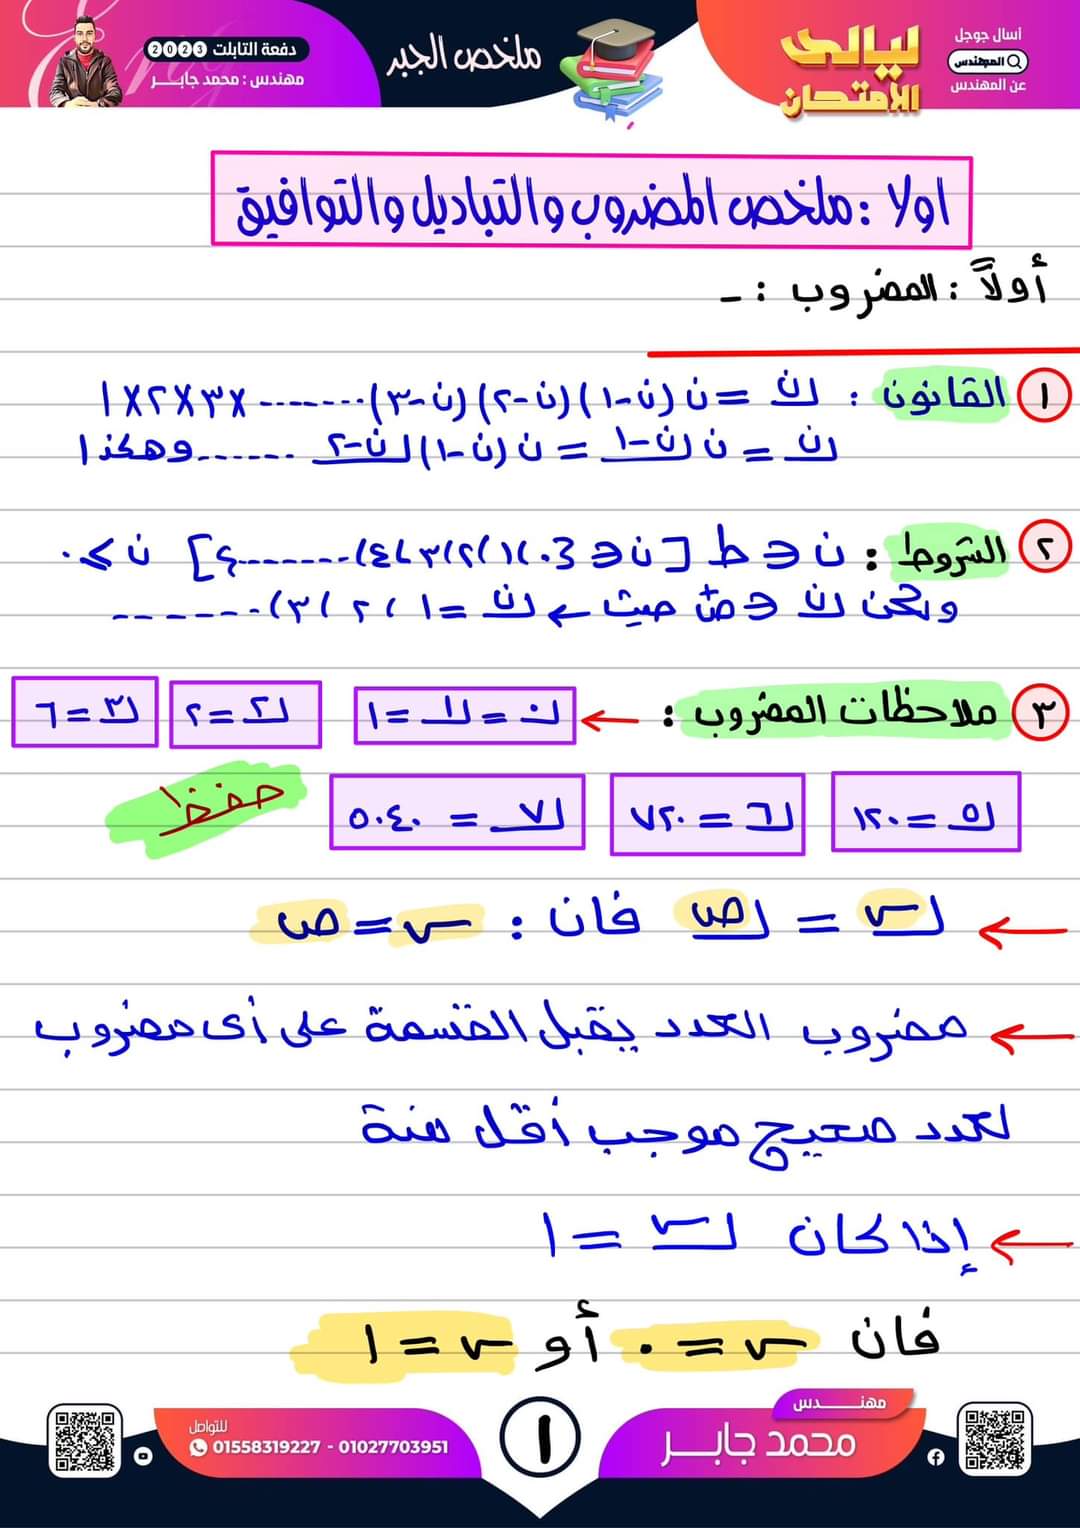 اسأل جوجل
المهندس
عن المهندس
ليالى
الامتحان
ملخص الجبر
دفعة التابلت 2023
مهندس : محمد جابـــر
اولا : ملخص المضروب والتباديل والتوافيق
أولاً : المضروب : -
١ القانون : لن = ن (ن-١)(ن-٢)(ن-٣)........×٣×٢×١
لن = ن لن-١ = ن (ن-١) لن-٢ ......وهكذا
٢ الشروط : ن ∈ ط [ن∈{٠،١،٢،٣،٤،........}] ن ≥ ٠
ولكن لن ∈ ص+ حيث ← لن = ١ ، ٢ ، ٣ ، ------
٣ ملاحظات المضروب : ← ل٠ = ل١ = ١ ل٢ = ٢ ل٣ = ٦
ل٥ = ١٢٠ ل٦ = ٧٢٠ ل٧ = ٥٠٤٠ حفظ
← لس = لص فان : س = ص
← مضروب العدد يقبل القسمة على أى مضروب
لعدد صحيح موجب أقل منة
← إذا كان لس = ١
فان س = ٠ أو س = ١
مهنـــدس
محمد جابـــر
١
للتواصل
01558319227 - 01027703951